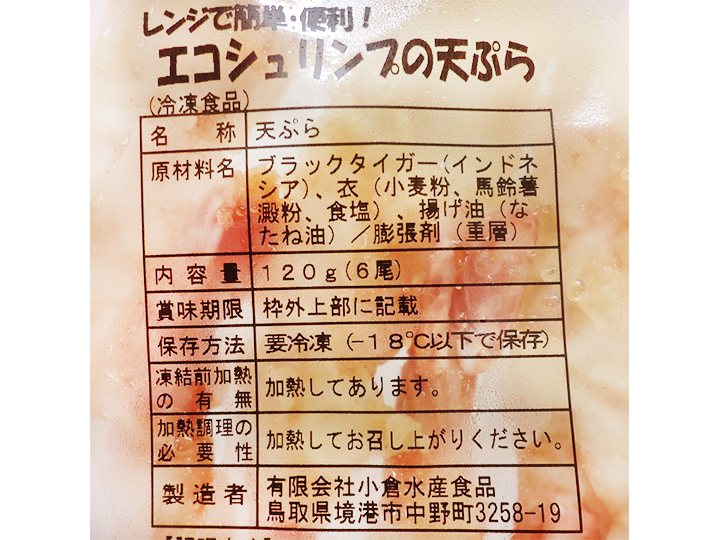 レンジで簡単・便利！
エコシュリンプの天ぷら
（冷凍食品）
名称 天ぷら
原材料名 ブラックタイガー（インドネ
シア）、衣（小麦粉、馬鈴薯
澱粉、食塩）、揚げ油（な
たね油）／膨張剤（重層）
内容量 120g（6尾）
賞味期限 枠外上部に記載
保存方法 要冷凍（-18℃以下で保存）
凍結前加熱
の有無 加熱してあります。
加熱調理の
必要性 加熱してお召し上がりください。
製造者 有限会社小倉水産食品
鳥取県境港市中野町3258-19